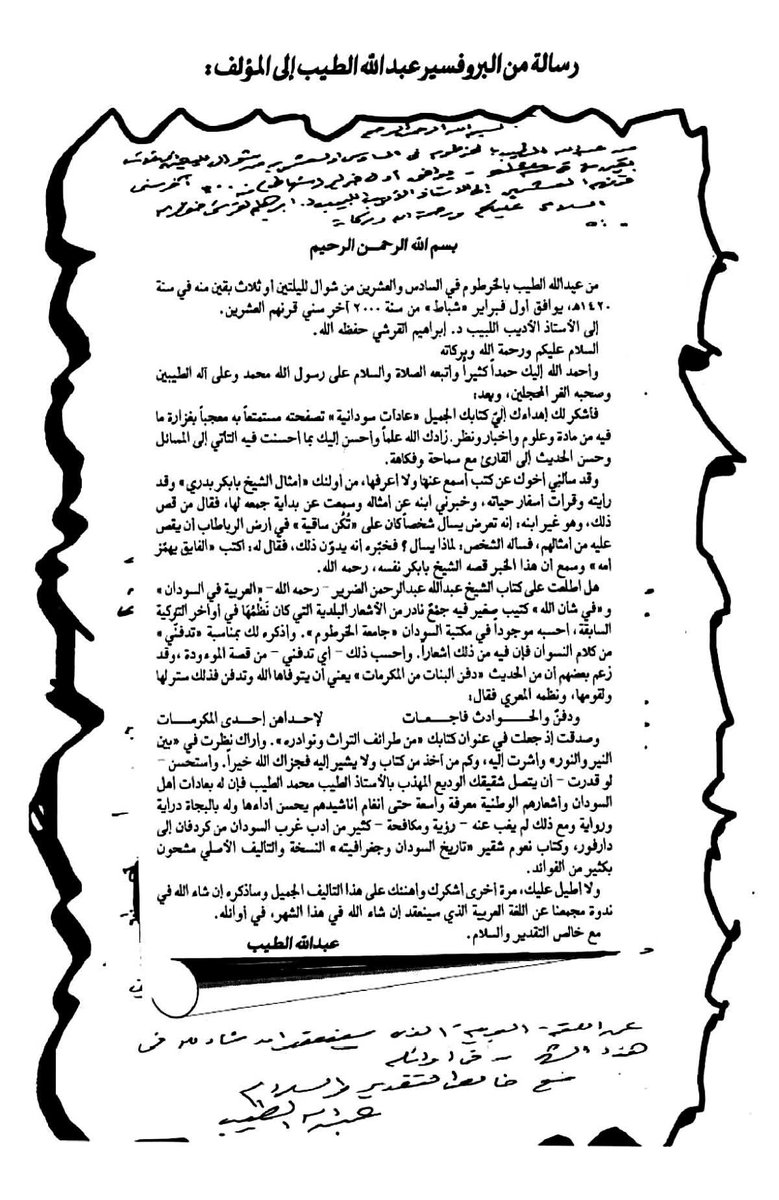 رسالة من البروفسير عبدالله الطيب إلى المؤلف:
بسم الله الرحمن الرحيم
السلام عليكم ورحمة الله وبركاته
بسم الله الرحمـن الرحيم
من عبدالله الطيب بالخرطوم في السادس والعشرين من شوال لليلتين أو ثلاث بقين منه في سنة
١٤٢٠هـ، يوافق أول فبراير «شباط» من سنة ٢٠٠٠ آخر سني قرنهم العشرين.
إلى الأستاذ الأديب اللبيب د. إبراهيم القرشي حفظه الله.
السلام عليكم ورحمة الله وبركاته
وأحمد الله إليك حمداً كثيراً وأتبعه الصلاة والسلام على رسول الله محمد وعلى آله الطيبين
وصحبه الغر المحجلين، وبعد:
فأشكر لك إهداءك إليّ كتابك الجميل «عادات سودانية» تصفحته مستمتعاً به معجباً بغزارة ما
فيه من مادة وعلوم وأخبار ونظر. زادك الله علماً وأحسن إليك بما أحسنت فيه التأتي إلى المسائل
وحسن الحديث إلى القارئ مع سماحة وفكاهة.
وقد سألني أخوك عن كتب أسمع عنها ولا أعرفها، من أولئك «أمثال الشيخ بابكر بدري» وقد
رأيته وقرأت أسفار حياته، وخبرني ابنه عن أمثاله وسمعت عن بداية جمعه لها، فقال من قص
ذلك، وهو غير ابنه، إنه تعرض يسأل شخصاً كان على «تُكُن ساقية» في أرض الرباطاب أن يقص
عليه من أمثالهم، فسأله الشخص: لماذا يسأل؟ فخبّره أنه يدوّن ذلك، فقال له: اكتب «الفايق بهمّز
أمه» وسمع أن هذا الخبر قصه الشيخ بابكر نفسه، رحمه الله.
هل اطلعت على كتاب الشيخ عبدالله عبدالرحمن الضرير – رحمه الله – «العربية في السودان»
و«في شان الله» كتيب صغير فيه جمْع نادر من الأشعار البلدية التي كان نَظْمُهَا في أواخر التركية
السابقة، أحسبه موجوداً في مكتبة السودان «جامعة الخرطوم». وأذكره لك بمناسبة «تدفنّي»
من كلام النسوان فإن فيه من ذلك أشعاراً. وأحسب ذلك – أي تدفني – من قصة الموءودة، وقد
زعم بعضهم أن من الحديث «دفن البنات من المكرمات» يعني أن يتوفاها الله وتدفن فذلك ستر لها
ولقومها، ونظمه المعري فقال:
ودفنٌ والحـــوادث فاجـعـات لإحداهن إحدى المكرمـات
وصدقت إذ جعلت في عنوان كتابك «من طرائف التراث ونوادره». وأراك نظرت في «بين
النير والنور» وأشرت إليه، وكم من آخذ من كتاب ولا يشير إليه فجزاك الله خيراً. وأستحسن –
لو قدرت – أن يتصل شقيقك الوديع المهذب بالأستاذ الطيب محمد الطيب فإن له بعادات أهل
السودان وأشعارهم الوطنية معرفة واسعة حتى أنغام أناشيدهم يحسن أداءها وله بالبجاة دراية
ورواية ومع ذلك لم يغب عنه – رؤية ومكافحة – كثير من أدب غرب السودان من كردفان إلى
دارفور، وكتاب نعوم شقير «تاريخ السودان وجغرافيته» النسخة والتأليف الأصلي مشحون
بكثير من الفوائد.
ولا أطيل عليك، مرة أخرى أشكرك وأهنئك على هذا التأليف الجميل وسأذكره إن شاء الله في
ندوة مجمعنا عن اللغة العربية الذي سينعقد إن شاء الله في هذا الشهر، في أوائله.
مع خالص التقدير والسلام.
عبدالله الطيب
عن اللغة العربية الذي سينعقد إن شاء الله في
هذا الشهر في أوائله
مع خالص التقدير والسلام
عبدالله الطيب